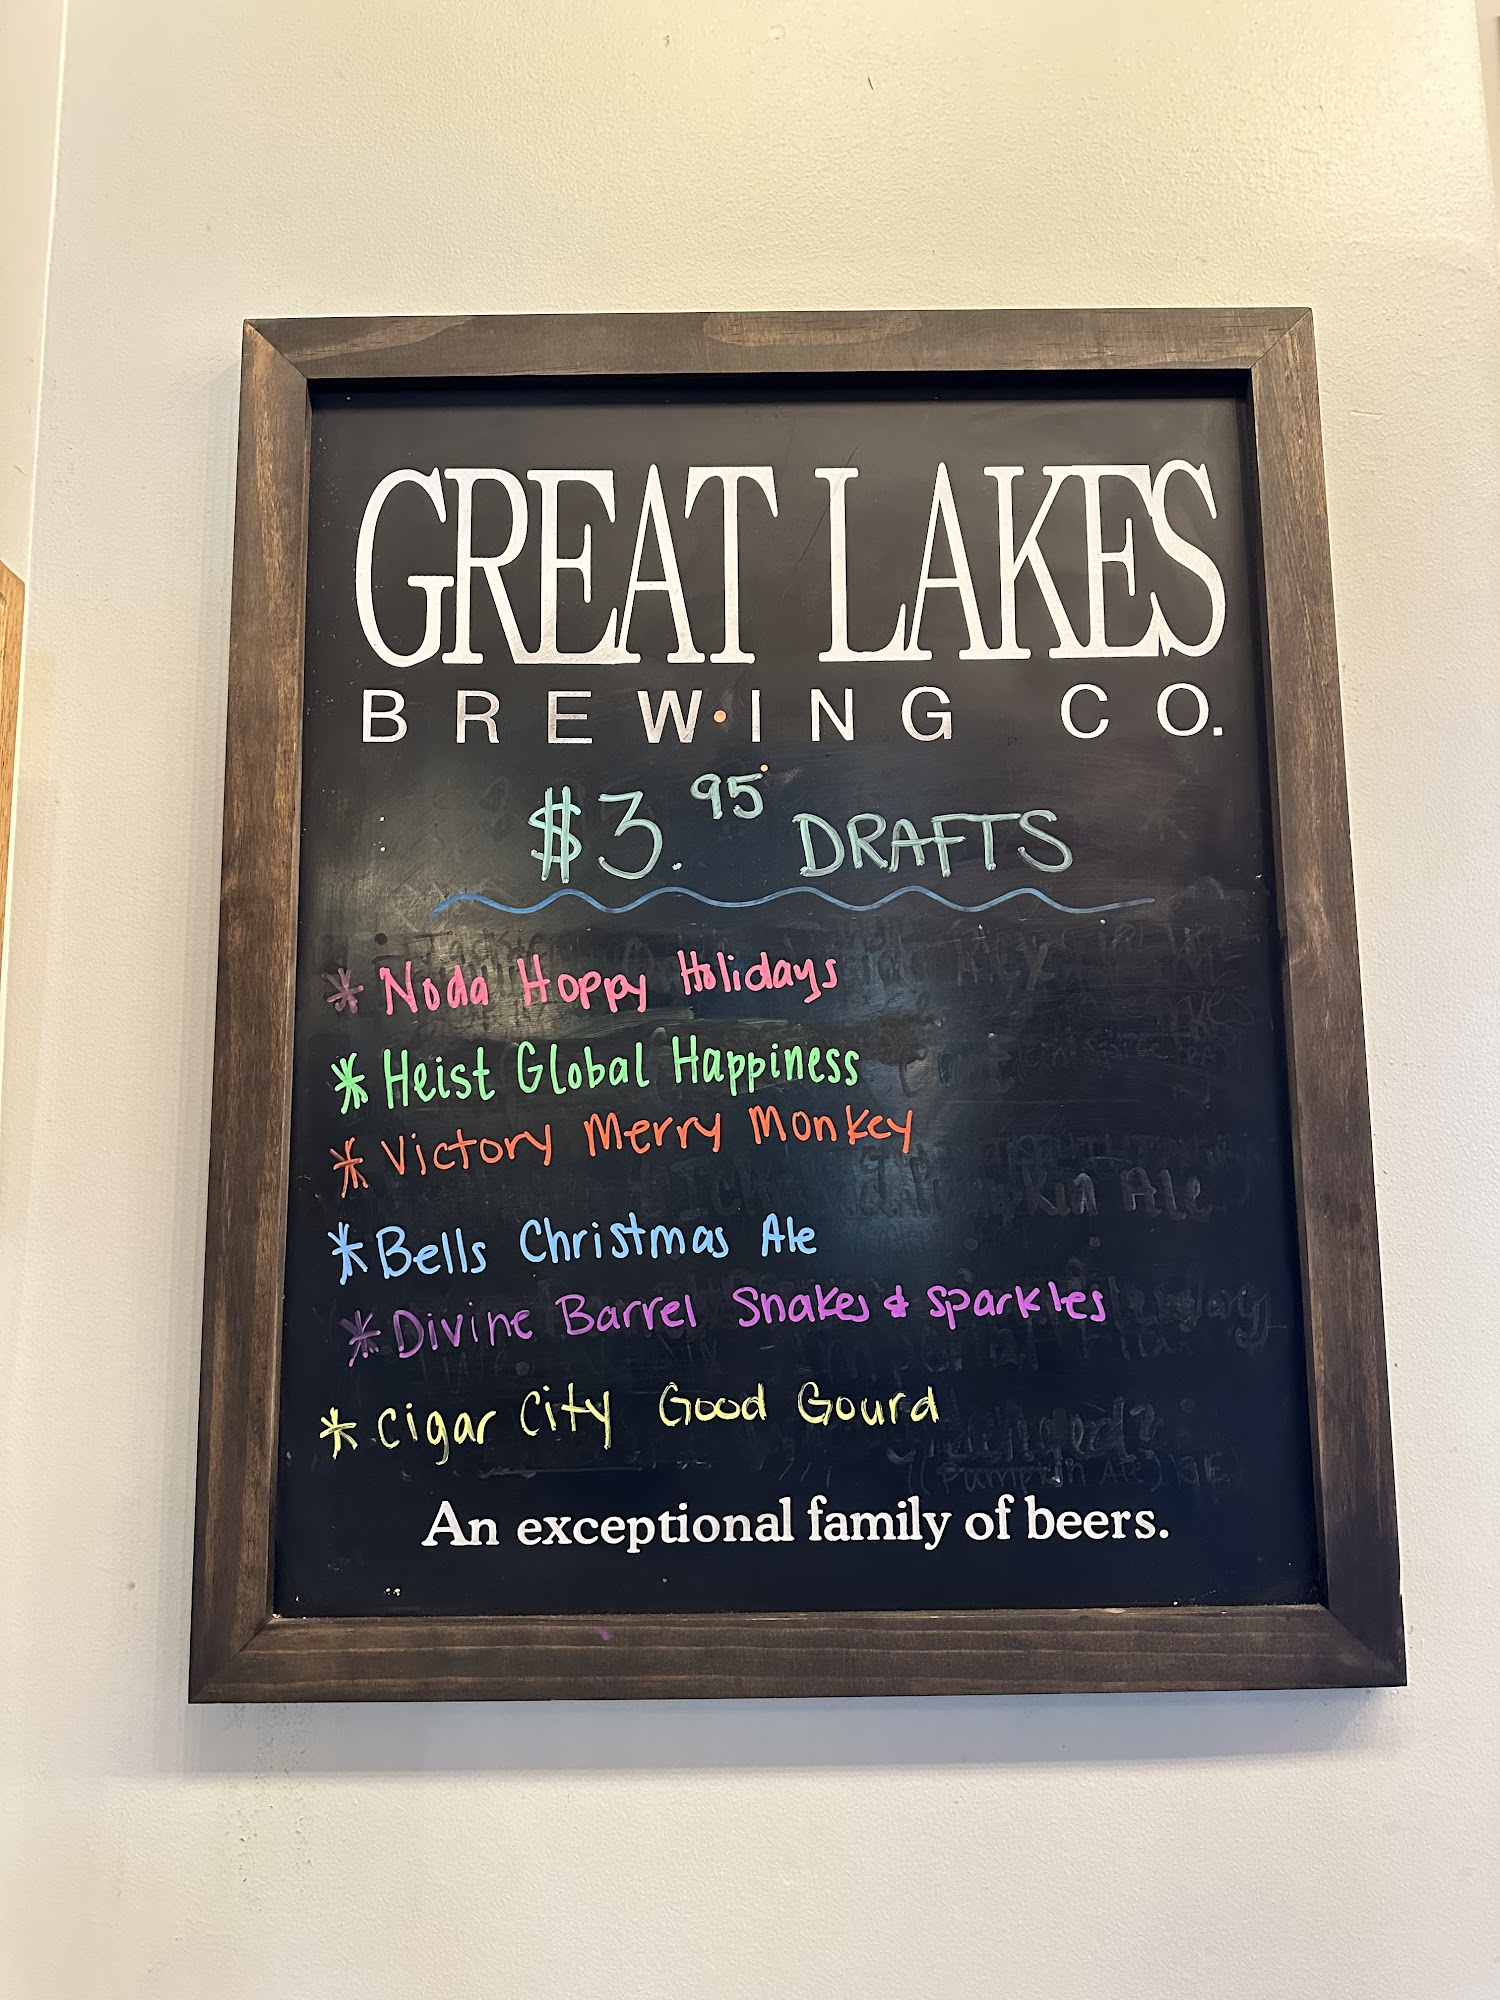 GREAT LAKES
BREWING CO.
$3.95 DRAFTS
* Noda Hoppy Holidays
* Heist Global Happiness
* Victory Merry Monkey
* Bells Christmas Ale
* Divine Barrel Snakes & Sparkles
* Cigar City Good Gourd
An exceptional family of beers.